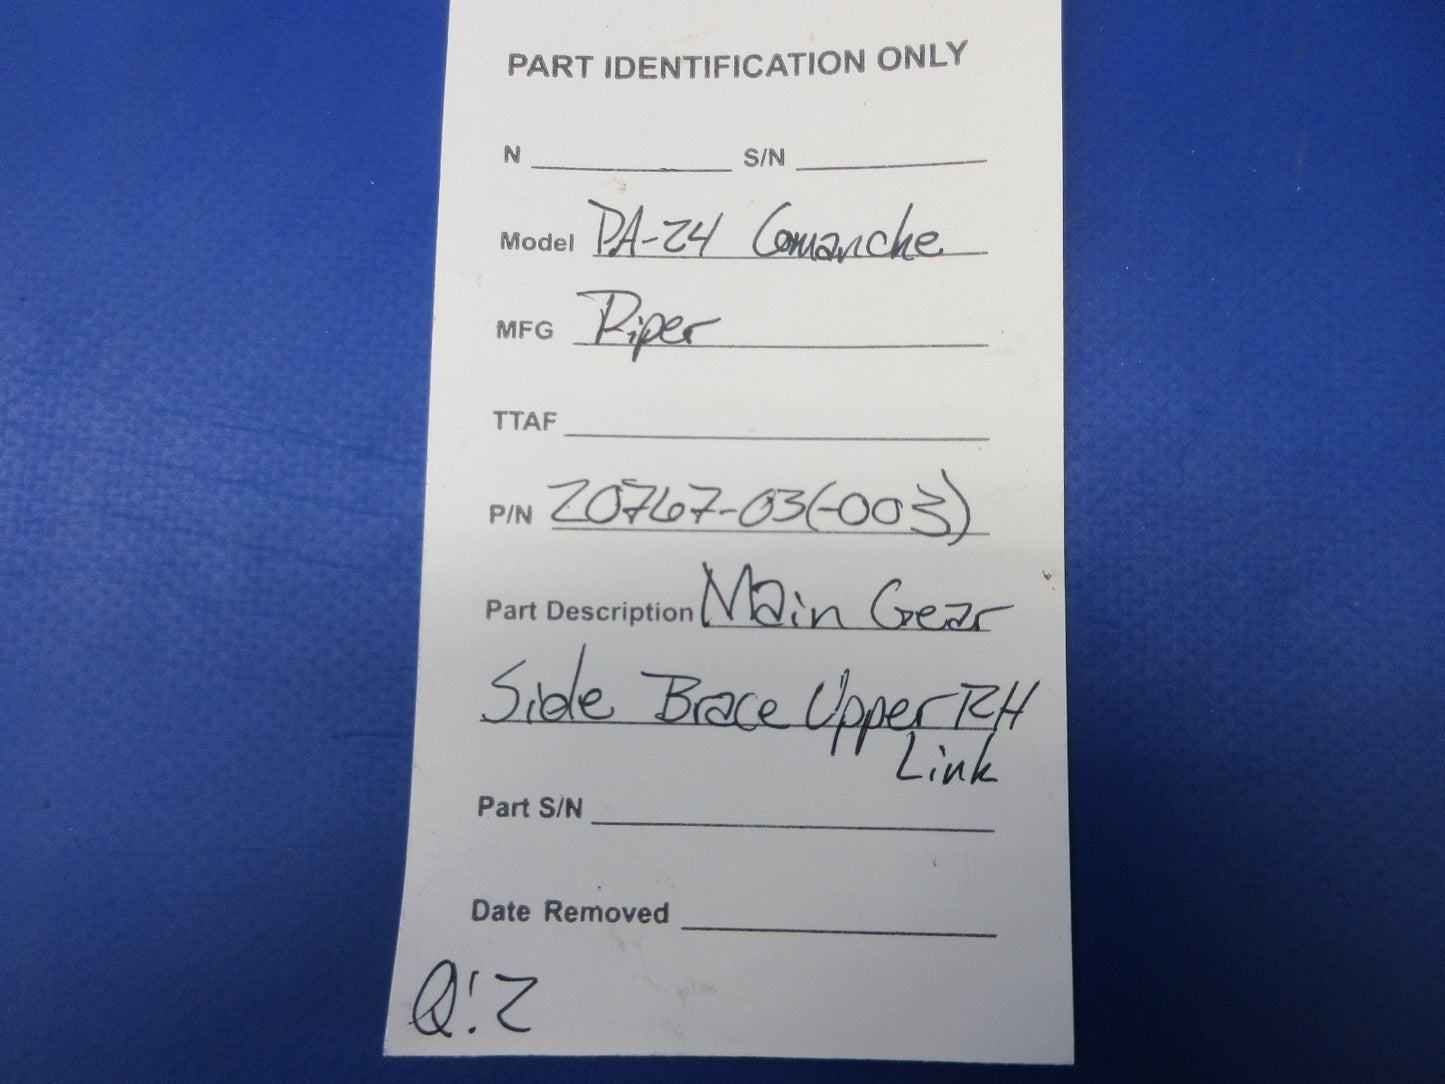 PART IDENTIFICATION ONLY
N S/N
Model PA-24 Comanche
MFG Piper
TTAF
P/N 20767-03(-003)
Part Description Main Gear
Side Brace Upper RH
Link
Part S/N
Date Removed
Q:2